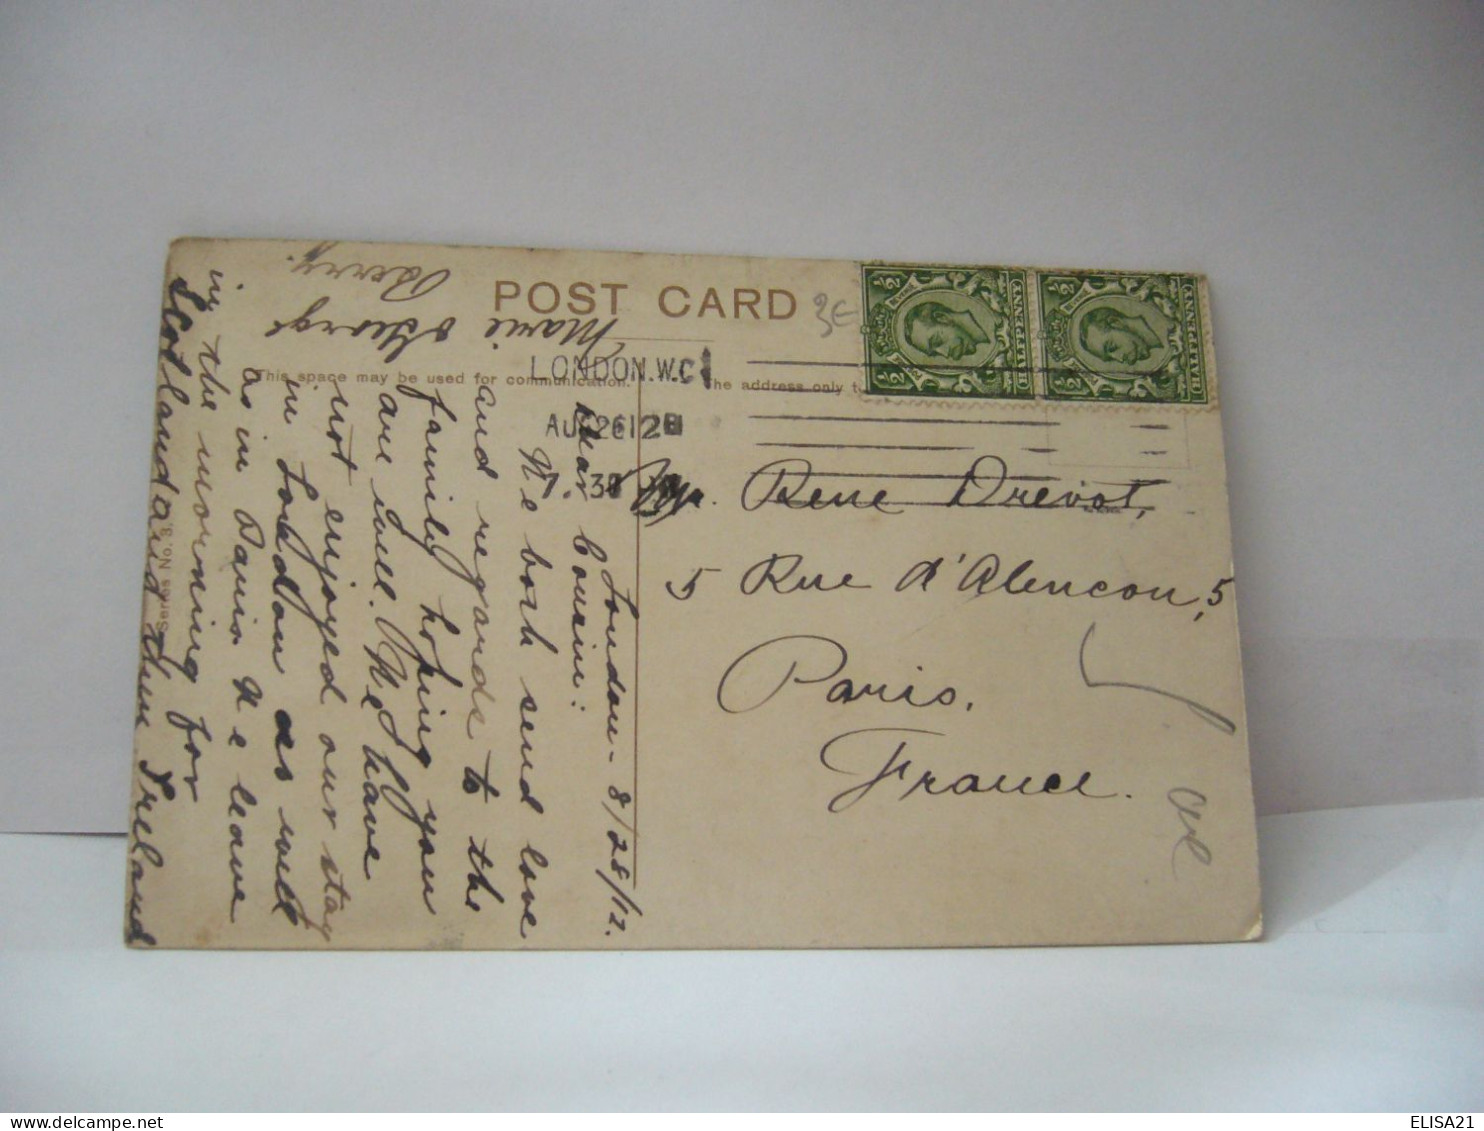 POST CARD
This space may be used for communication.
The address only to
LONDON.W.C
AUG 26 12
7.30
HALFPENNY
½
½
HALFPENNY
½
½
3E
London - 8/28/12.
Dear Cousin:
We both send love
and regards to the
family hoping you
are well. We have
not enjoyed our stay
in London as well
as in Paris. We leave
in the morning for
Scotland and then Ireland
Marie & George
Berry.
Mr. Rene Drevot,
5 Rue d'Alencon, 5
Paris.
France.
Series No. 3.
ELISA21